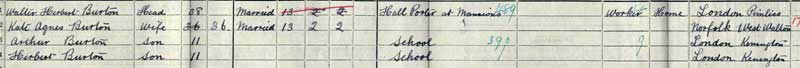 Walter Herbert Burton Head 38 Married 13 2 2 Hall Porter at Mansions 489 Worker Home London Pimlico
Kate Agnes Burton Wife 36 36. Married 13 2 2 Norfolk West Walton
Arthur Burton Son 11 School 390 London Kensington
Herbert Burton Son 11 School London Kensington